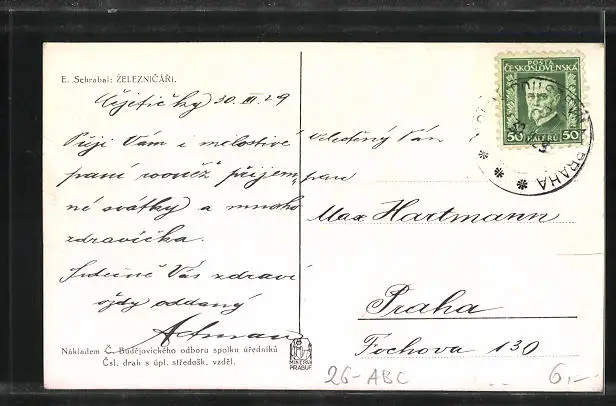 E. Schrabal: ŽELEZNIČÁŘI.
30. III. 29
Přeji Vám i milostivé
paní rovněž příjem-
né svátky a mnoho
zdravíčka.
Srdečně Vás zdraví
vždy oddaný
Nákladem Č. Budějovického odboru spolku úředníků
Čsl. drah s úpl. středošk. vzděl.
MINERVA
PRAGUE
POŠTA
ČESKOSLOVENSKÁ
50 HALÉŘŮ 50
PRAHA
Velectěný Pán
pan
Max Hartmann
Praha
Fochova 130
26-ABC
6,-